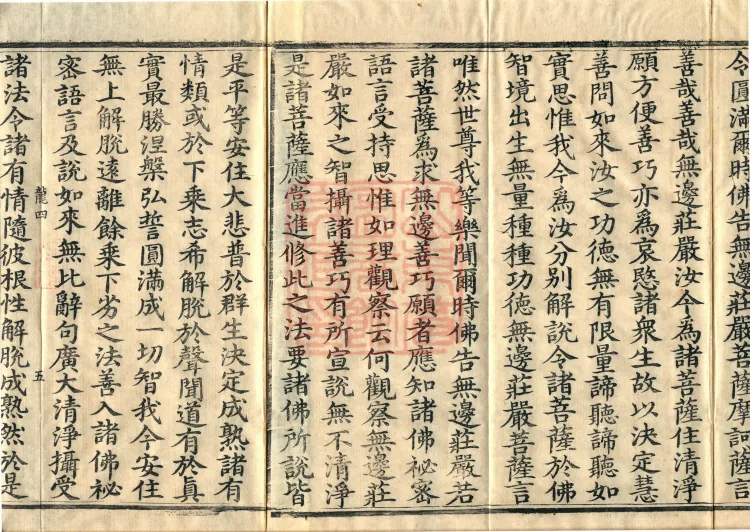 令圓滿爾時佛告無邊莊嚴菩薩摩訶薩言
善哉善哉無邊莊嚴汝今為諸菩薩住清淨
願方便善巧亦為哀愍諸衆生故以決定慧
善問如來汝之功德無有限量諦聽諦聽如
實思惟我今為汝分別解說令諸菩薩於佛
智境出生無量種種功德無邊莊嚴菩薩言
唯然世尊我等樂聞爾時佛告無邊莊嚴若
諸菩薩為求無邊善巧願者應知諸佛祕密
語言受持思惟如理觀察云何觀察無邊莊
嚴如來之智攝諸善巧有所宣說無不清淨
是諸菩薩應當進修此之法要諸佛所說皆
是平等安住大悲普於群生決定成熟諸有
情類或於下乘志希解脫於聲聞道有於真
實最勝涅槃弘誓圓滿成一切智我今安住
無上解脫遠離餘乘下劣之法善入諸佛祕
密語言及說如來無比辭句廣大清淨攝受
龍四 五
諸法令諸有情隨彼根性解脫成熟然於是